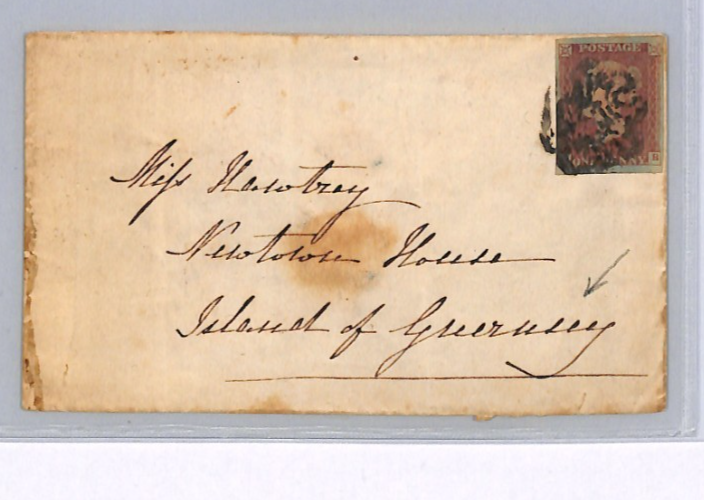 POSTAGE
ONE PENNY
B
Miss Hawtrey
Newtown House
Island of Guernsey